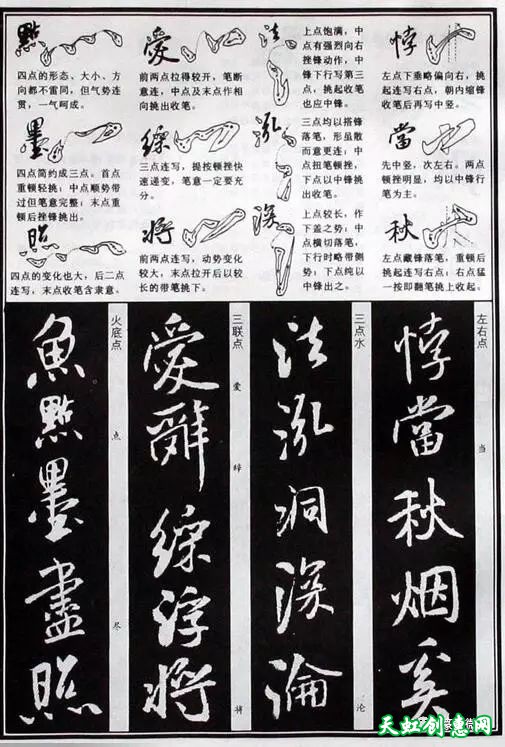 點
四点的形态、大小、方
向都不雷同，但气势连
贯，一气呵成。
墨
四点简约成三点。首点
重顿轻挑；中点顺势带
过但笔意完整；末点重
顿后挫锋挑出。
照
四点的变化也大，后二点
连写，末点收笔含隶意。
愛
前两点拉得较开，笔断
意连，中点及末点作相
向挑出收笔。
三点连写，提按顿挫快
速递变，笔意一定要充
分。
將
前两点连写，动势变化
较大，末点拉开后以较
长的带笔挑下。
法
上点饱满，中
点有强烈向右
挫锋动作，中
锋下行写第三
点，挑起收笔
也应中锋。
泓
三点均以搭锋
落笔，形虽散
而意更连；中
点扭笔顿挫，
下点以中锋挑
出收笔。
深
上点较长，作
下盖之势；中
点横切落笔，
下行时略带侧
势；下点纯以
中锋出之。
悖
左点下垂略偏向右，挑
起连写右点，朝内缩锋
收笔后再写中竖。
當
先中竖，次左右，两点
顿挫明显，均以中锋行
笔为主。
秋
左点藏锋落笔，重顿后
挑起连写右点；右点猛
一按即翻笔挑上收起。
火底点
点
尽
魚點墨盡照
三联点
爱
辞
将
愛辤
浮將
三点水
沦
法泓洞深淪
左右点
当
悖當秋烟
天虹创意网